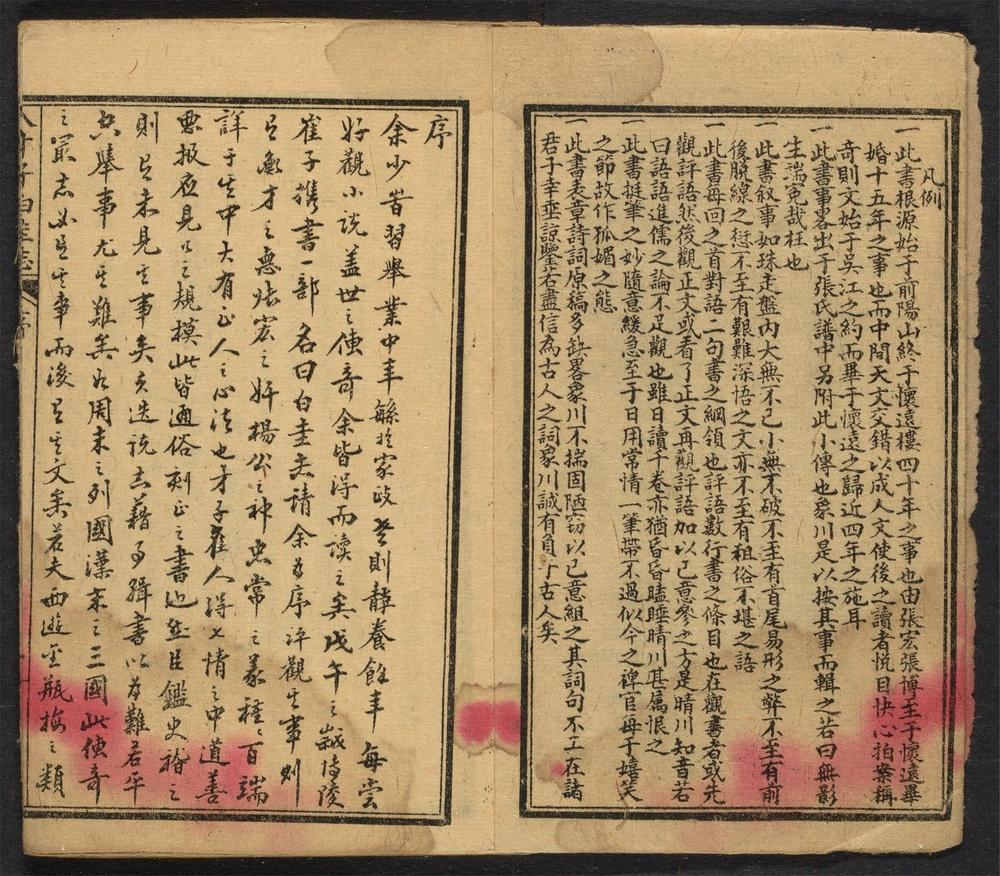 凡例
一此書根源始于前陽山終于懷遠樓四十年之事也由張宏張博至于懷遠畢
婚十五年之事也而中間天文交錯以成人文使後之讀者悅目快心拍案稱
奇則文始于吳江之約而畢于懷遠之歸近四年之施耳
一此書事畧出于張氏譜中另附此小傳也象川是以按其事而輯之若曰無影
生端冤哉枉也
一此書叙事如珠走盤內大無不已小無不破不至有首尾易形之弊不至有前
後脫線之愆不至有艱難深悟之文亦不至有租俗不堪之語
一此書每回之首對語二句書之綱領也評語數行書之條目也在觀書者或先
觀評語然後觀正文或看了正文再觀評語加以己意參之方是晴川知音若
曰語語進儒之論不足觀也雖日讀千卷亦猶昏昏瞌睡晴川甚属恨之
一此書挺筆之妙隨意緩急至于日用常情一筆帶不過似今之禆官毋于嬉笑
之節故作孤媚之態
一此書表章詩詞原稿多缺畧象川不揣固陋窃以己意組之其詞句不工在諸
君子幸垂諒鑒若盡信為古人之詞象川誠有負于古人矣
序
余少嘗習舉業中年繇於家政老則靜養餘年每嘗
好觀小說盖世之傳奇余皆淂而读之矣戊午之歲博陵
崔子携書一部名曰白圭志請余为序评觀其事则
吕無才之惡张宏之奸楊公之神忠常之義種之百端
詳于其中大有正人之心法也才子佳人得之情之中道善
惡报应見之規模此皆通俗刻正之書也并臣鑑史褙之
則吕未見其事矣夫造說者藉事輯書以为難若平
空舉事尤其難矣如周末之列國漢末之三國此傳奇
之最志必吕其事而後吕其文矣若夫西遊金瓶梅之類